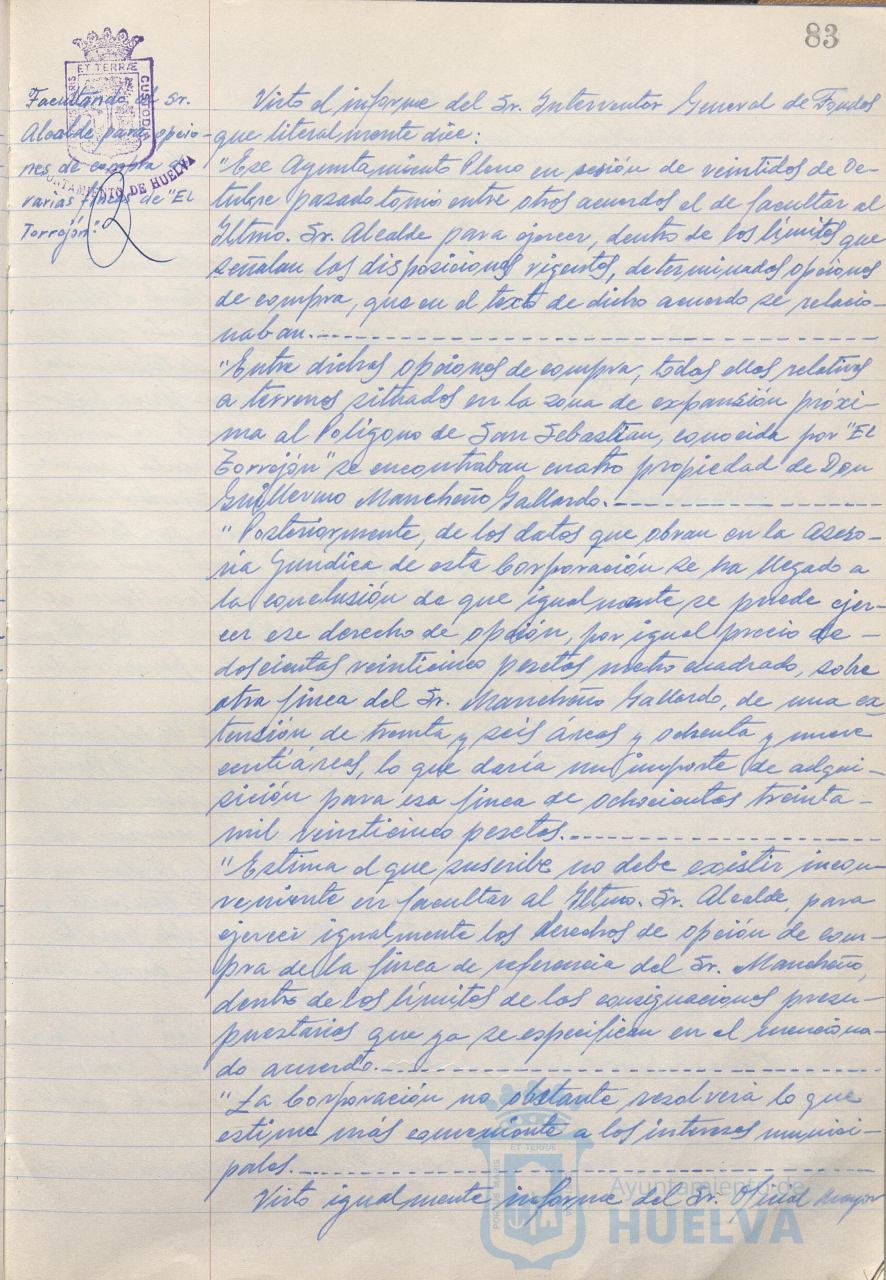 83
ET TERRÆ
CUSTODIA
AYUNTAMIENTO DE HUELVA
Facultando al Sr.
Alcalde para opcio-
nes de compra de
varias fincas de "El
Torrejón".
Visto el informe del Sr. Interventor General de Fondos
que literalmente dice:
"Ese Ayuntamiento Pleno en sesión de veintidos de Oc-
tubre pasado tomó entre otros acuerdos el de facultar al
Iltmo. Sr. Alcalde para ejercer, dentro de los límites que
señalan las disposiciones vigentes, determinadas opciones
de compra, que en el texto de dicho acuerdo se relacio-
naban.
"Entre dichas opciones de compra, todas ellas relativas
a terrenos situados en la zona de expansión próxi-
ma al Polígono de San Sebastian, conocida por "El
Torrejón" se encontraban cuatro propiedad de Don
Guillermo Mancheño Gallardo.
"Posteriormente, de los datos que obran en la Aseso-
ria Jurídica de esta Corporación se ha llegado a
la conclusión de que igualmente se puede ejer-
cer ese derecho de opción, por igual precio de
doscientas veinticinco pesetas metro cuadrado, sobre
otra finca del Sr. Mancheño Gallardo, de una ex-
tensión de treinta y seis áreas y ochenta y nueve
centiáreas, lo que daría un importe de adqui-
sición para esa finca de ochocientas treinta
mil veinticinco pesetas.
"Estima el que suscribe no debe existir incon-
veniente en facultar al Iltmo. Sr. Alcalde, para
ejercer igualmente los derechos de opción de com-
pra de la finca de referencia del Sr. Mancheño,
dentro de los límites de las consignaciones presu-
puestarias que ya se especifican en el menciona-
do acuerdo.
"La Corporación no obstante resolverá lo que
estime más conveniente a los intereses munici-
pales.
Visto igualmente informe del Sr. Oficial Mayor
ET TERRÆ
PORTUS MARIS
Ayuntamiento de
HUELVA